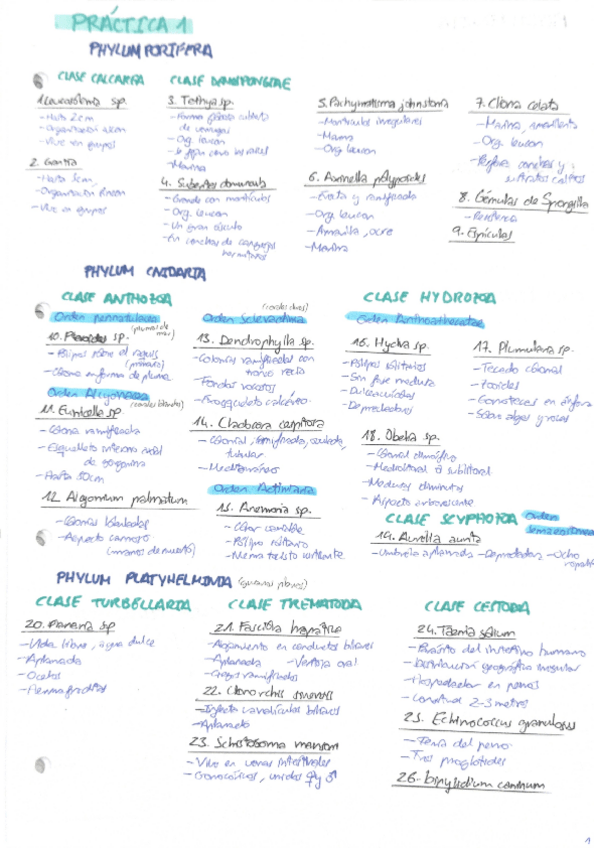 PRÁCTICA 1
PHYLUM PORIFERA
CLASE CALCAREA
1. Leucosolenia sp.
- Hasta 2cm
- Organización ascon
- Vive en grupos
2. Grantia
- Hasta 5cm
- Organización
- Vive en grupos
CLASE DEMOSPONGIAE
3. Tethya sp.
- Forma globosa cubierta
de verrugas
- Org. leucon
- Se fijan como las raíces
- Marina
4. Suberites domuncula
- Grande con montículos
- Org. leucon
- Un gran ósculo
- En conchas de cangrejos
hermitaños
5. Pachymatisma johnstonia
- Montículos irregulares
- Marina
- Org leucon
6. Axinella polypoides
- Erecta y ramificada
- Org. leucon
- Amarilla, ocre
- Marina
7. Cliona celata
- Marina, amarillenta
- Org. leucon
- Perfora conchas y
sustratos calizos
8. Gémulas de Spongilla
9. Espículas
PHYLUM CNIDARIA
CLASE ANTHOZOA
Orden pennatulacea
(plumas de mar)
10. Pteroides sp.
- Pólipos sobre el raquis
(primario)
- Colonia en forma de pluma
Orden Alcyonacea
(corales blandos)
11. Eunicella sp
- Colonia ramificada
- Esqueleto interno axial
de gorgonina
- Hasta 50cm
12. Alcyonium palmatum
- Colonias lobuladas
- Aspecto carnoso
(manos de muerto)
(corales duros)
Orden Scleractinia
13. Dendrophyllia sp.
- Colonias ramificadas con
tronco recto
- Fondos rocosos
- Exoesqueleto calcáreo
14. Cladocora cespitosa
- Colonial, ramificada,
tubular
- Mediterráneo
Orden Actiniaria
15. Anemonia sp.
- Color variable
- Pólipo solitario
- Nematocisto urticante
CLASE HYDROZOA
Orden Anthoathecatae
16. Hydra sp.
- Pólipos solitarios
- Sin fase medusa
- Dulceacuícolas
- Depredadores
17. Plumularia sp.
- Tecado colonial
- Gonotecas en ánfora
- Sobre algas y rocas
18. Obelia sp.
- Colonial dimórfico
- Mediolitoral a sublitoral
- Medusas diminutas
- Aspecto arborescente
CLASE SCYPHOZOA
Orden
semaeostomeae
19. Aurelia aurita
- Umbrela aplanada - Depredadora - Ocho
PHYLUM PLATYHELMINTA (gusanos planos)
CLASE TURBELLARIA
20. Planaria sp
- Vida libre, agua dulce
- Aplanada
- Ocelos
- Hermafroditas
CLASE TREMATODA
21. Fasciola hepatica
- Alojamiento en conductos biliares
- Aplanada - Ventosa oral
- Ciegos ramificados
22. Clonorchis sinensis
- Infecta canalículos biliares
- Aplanado
23. Schistosoma mansoni
- Vive en venas intestinales
- Gonocóricos, unidos ♀ y ♂
CLASE CESTODA
24. Taenia solium
- Parásito del intestino humano
- Distribución geográfica irregular
- Hospedador en perros
- Longitud 2-3 metros
25. Echinococcus granulosus
- Tenia del perro
- Tres proglótides
26. Dipylidium caninum
1